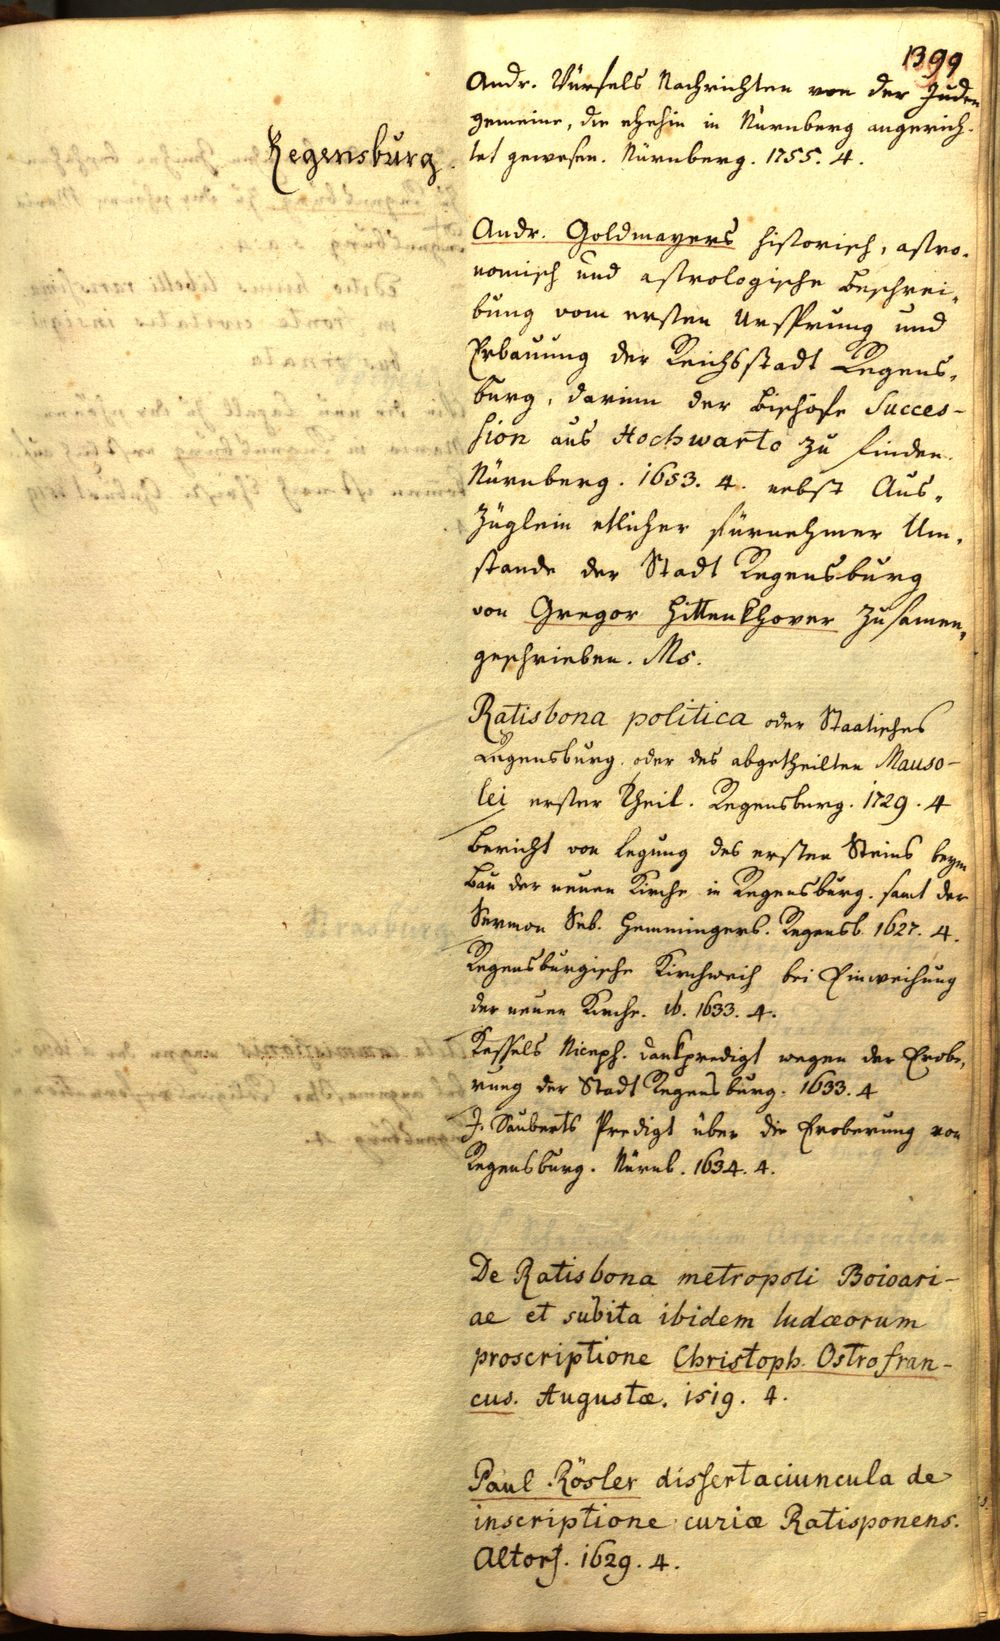 1399
Andr. Würfels Nachrichten von der Juden
gemeine, die ehehin in Nürnberg angerich-
tet gewesen. Nürnberg. 1755. 4.
Regensburg.
Andr. Goldmayers historisch, astro-
nomisch und astrologische Beschrei-
bung vom ersten Ursprung und
Erbauung der Reichsstadt Regens-
burg, darinn der Bischöfe Succes-
sion aus Hochwarto zu finden.
Nürnberg. 1653. 4. nebst Aus-
züglein etlicher fürnehmer Um-
stände der Stadt Regensburg
von Gregor Hittenkhover zusamen-
geschrieben. Ms.
Ratisbona politica oder Staatisches
Regensburg oder des abgetheilten Mauso-
lei erster Theil. Regensburg. 1729. 4
Bericht von Legung des ersten Steins beym
Bau der neuen Kirche in Regensburg. samt der
Sermon Seb. Hemmingers. Regensb. 1627. 4.
Regensburgische Kirchweih bei Einweihung
der neuen Kirche. ib. 1633. 4.
Kessels Niceph. Dankpredigt wegen der Erobe-
rung der Stadt Regensburg. 1633. 4
J. Sauberts Predigt über die Eroberung von
Regensburg. Nürnb. 1634. 4.
De Ratisbona metropoli Boioari-
ae et subita ibidem Iudæorum
proscriptione Christoph. Ostrofran-
cus. Augustæ. 1519. 4.
Paul Rösler dissertaciuncula de
inscriptione curiæ Ratisponens.
Altorf. 1629. 4.